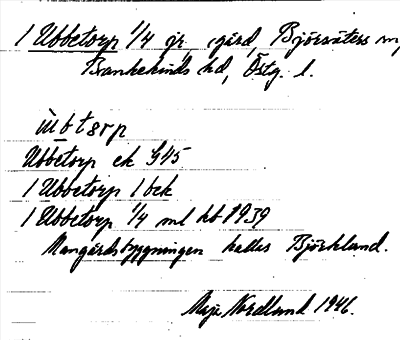 1 Ubbetorp 1/4 gr. i gård, Björsäters sn,
Bankekinds hd, Östg. l.
ùbtsrp
Ubbetorp ek S45
1 Ubbetorp 1 bek
1 Ubbetorp 1/4 ml hb 1939
Mangårdsbyggningen kallas Björkland.
Maja Nordlund 1946.